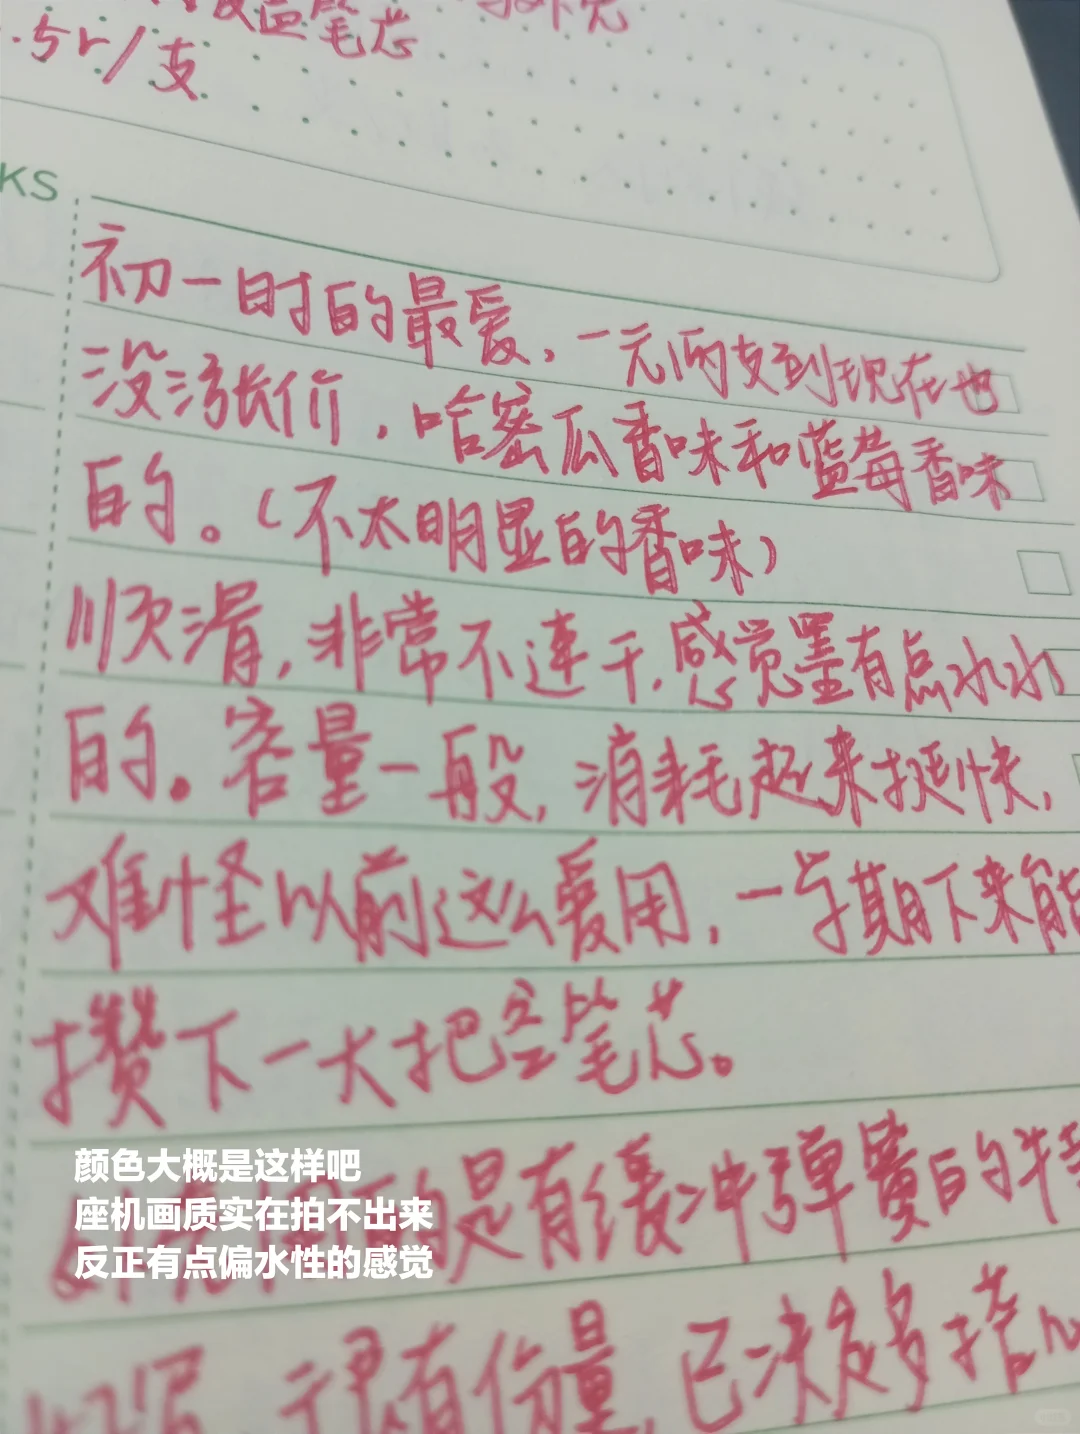 笔芯
.5r/支
KS
初一时的最爱,一元两支到现在也
没涨价,哈密瓜香味和蓝莓香味
的。(不太明显的香味)
顺滑,非常不速干,感觉墨有点水水
的。容量一般,消耗起来挺快,
难怪以前这么爱用,一学期下来能
攒下一大把空笔芯。
的是有缓冲弹簧的
颜色大概是这样吧
座机画质实在拍不出来
反正有点偏水性的感觉
有份量,已决定多